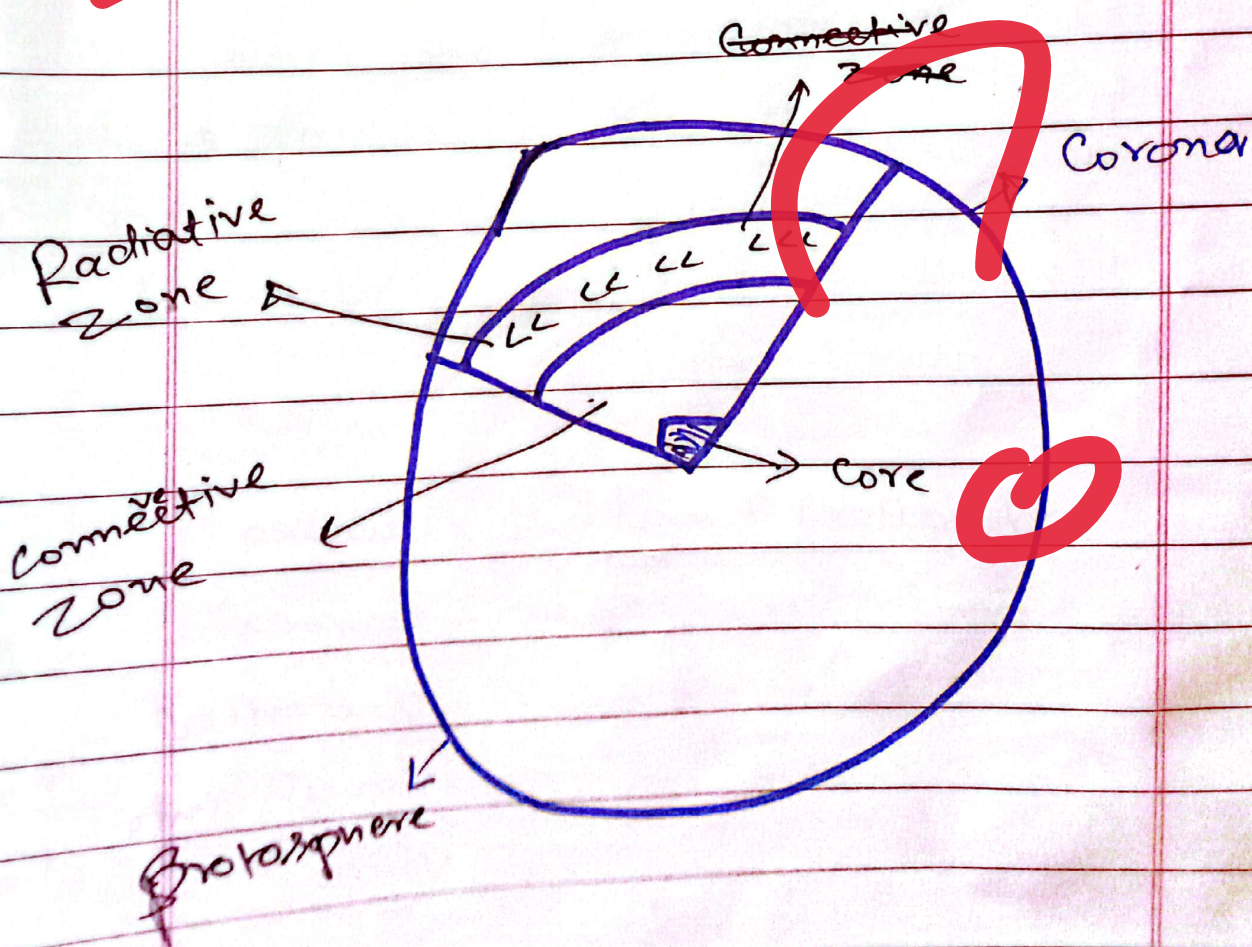 Connective
zone
Corona
Radiative
zone
core
ve
connective
zone
Protosphere